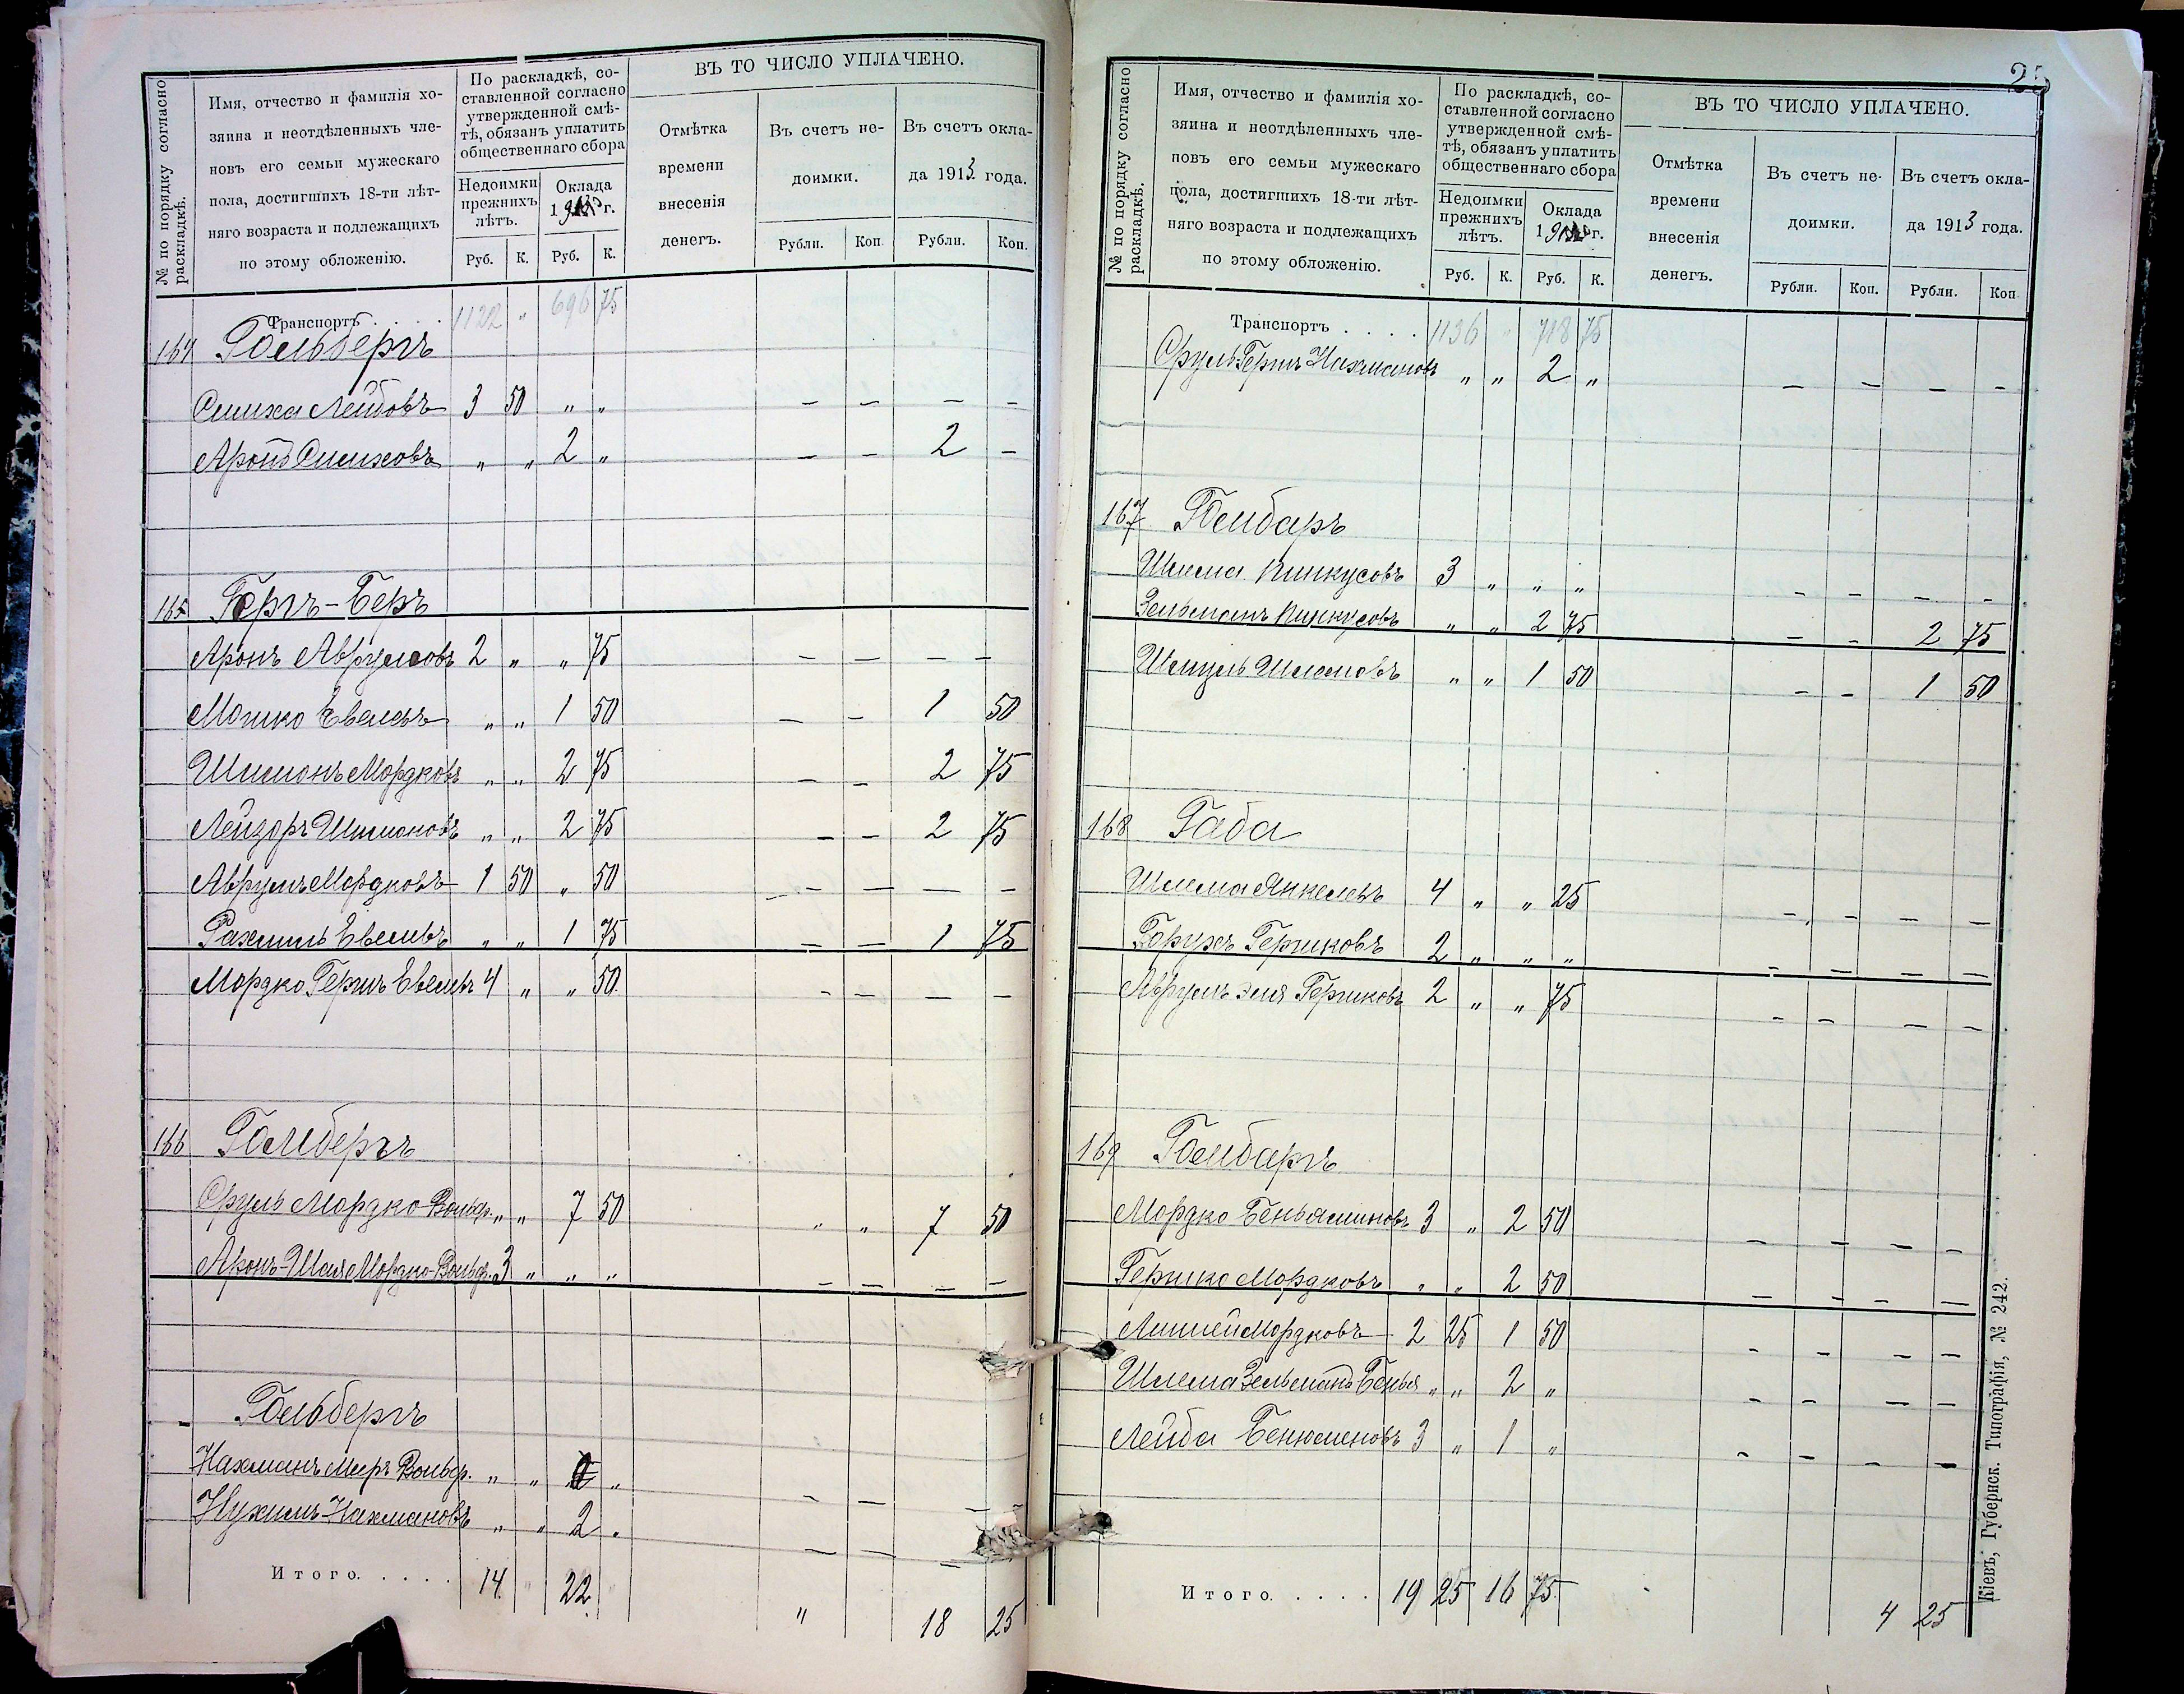 № по порядку согласно раскладкѣ.
Имя, отчество и фамилія хо-
зяина и неотдѣленныхъ чле-
новъ его семьи мужескаго
пола, достигшихъ 18-ти лѣт-
няго возраста и подлежащихъ
по этому обложенію.
По раскладкѣ, со-
ставленной согласно
утвержденной смѣ-
тѣ, обязанъ уплатить
общественнаго сбора
Недоимки прежнихъ лѣтъ.
Оклада 1913 г.
Руб. К. Руб. К.
ВЪ ТО ЧИСЛО УПЛАЧЕНО.
Отмѣтка
времени
внесенія
денегъ.
Въ счетъ не-
доимки.
Въ счетъ окла-
да 1913 года.
Рубли. Коп. Рубли. Коп.
Транспортъ . . . . 1122 " 696 75
164 Гольбергъ
Симха Лейбовъ 3 50 " " — — — —
Аронъ Симховъ " " 2 " — — 2 —
165 Гергъ-Беръ
Аронъ Аврумовъ 2 " " 75 — — — —
Мошко Евелевъ " " 1 50 — — 1 50
Шимонъ Мордковъ " " 2 75 — — 2 75
Лейзоръ Шимоновъ " " 2 75 — — 2 75
Аврумъ Мордковъ 1 50 " 50 — — — —
Рахмиль Евелевъ " " 1 75 — — 1 75
Мордко Гершъ Евелевъ 4 " " 50 — — — —
166 Голбергъ
Сруль Мордко-Вольф. " " 7 50 " " 7 50
Аронъ-Шая Мордко-Вольф. 3 " " " — — — —
- Гольбергъ
Нахманъ Меръ Вольф. " " " — — — —
Нухимъ Нахмановъ " " 2 " — — —
Итого. . . . . 14 " 22 " " 18 25
25
№ по порядку согласно раскладкѣ.
Имя, отчество и фамилія хо-
зяина и неотдѣленныхъ чле-
новъ его семьи мужескаго
пола, достигшихъ 18-ти лѣт-
няго возраста и подлежащихъ
по этому обложенію.
По раскладкѣ, со-
ставленной согласно
утвержденной смѣ-
тѣ, обязанъ уплатить
общественнаго сбора
Недоимки прежнихъ лѣтъ.
Оклада 1913 г.
Руб. К. Руб. К.
ВЪ ТО ЧИСЛО УПЛАЧЕНО.
Отмѣтка
времени
внесенія
денегъ.
Въ счетъ не-
доимки.
Въ счетъ окла-
да 1913 года.
Рубли. Коп. Рубли. Коп.
Транспортъ . . . . 1136 " 718 75
Сруль Гершъ Нахмановъ " " 2 " — — — —
167 Голбаръ
Шлема Пинкусовъ 3 " " " — — — —
Зельманъ Пинкусовъ " " 2 75 — — 2 75
Шмуль Шлемовъ " " 1 50 — — 1 50
168 Габа
Шлема Янкелевъ 4 " " 25 — — — —
Борухъ Гершковъ 2 " " " — — — —
Аврумъ Эля Гершковъ 2 " " 75 — — — —
169 Голбаргъ
Мордко Беньяминовъ 3 " 2 50 — — — —
Гершко Мордковъ " " 2 50 — — — —
Мордковъ 2 25 1 50 — — — —
Шлема Зельманъ Бенья " " 2 " — — — —
Лейба Бенюменовъ 3 " 1 " — — — —
Итого. . . . . 19 25 16 75 4 25
Кіевъ, Губернск. Типографія, № 242.